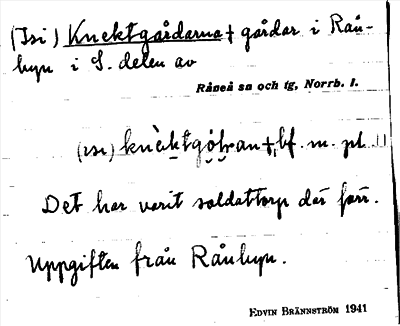 (Isi) Knektgårdarna + gårdar i Rån-
byn i S. delen av
Råneå sn och tg, Norrb. l.
bf. m. pl.
Det har varit soldattorp där förr.
Uppgiften från Rånbyn.
EDVIN BRÄNNSTRÖM 1941